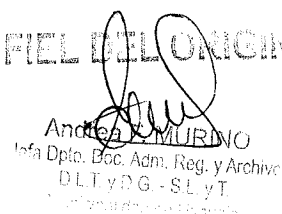 FIEL DEL ORIGIN
Andrea MURINO
Jefa Dpto. Doc. Adm. Reg. y Archivo
D.L.T. y D.G. - S.L. y T.